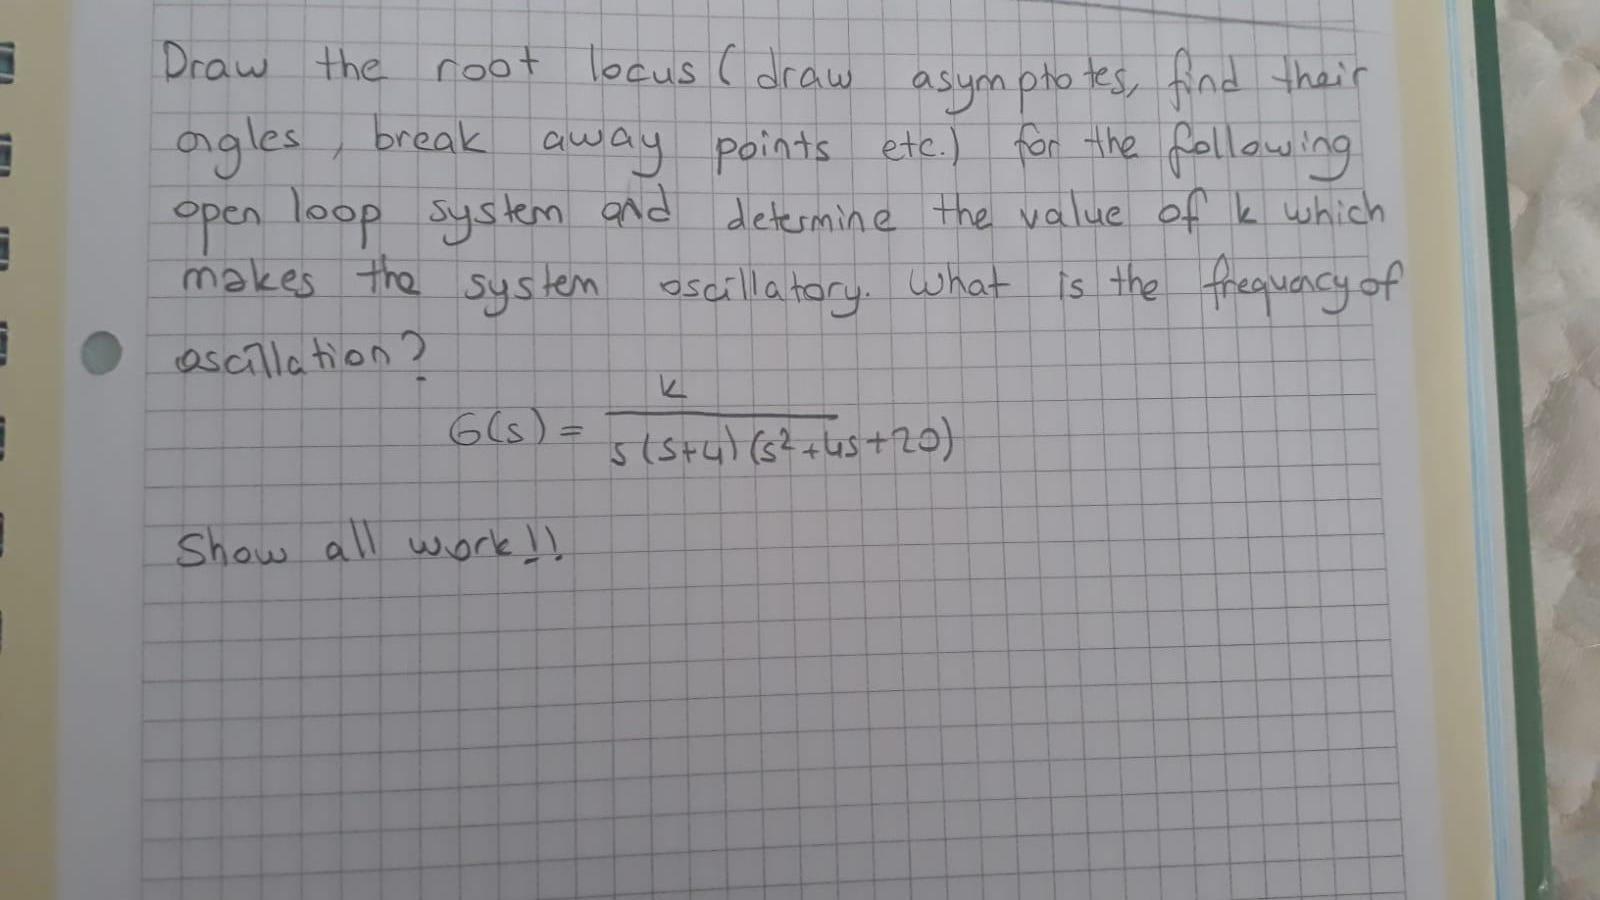 Draw the root locus (draw asymptotes, find their
angles, break away points etc.) for the following
open loop system and determine the value of k which
makes the system oscillatory. What is the frequency of
oscillation?
G(s) = k / s(s+4)(s²+4s+20)
Show all work!!